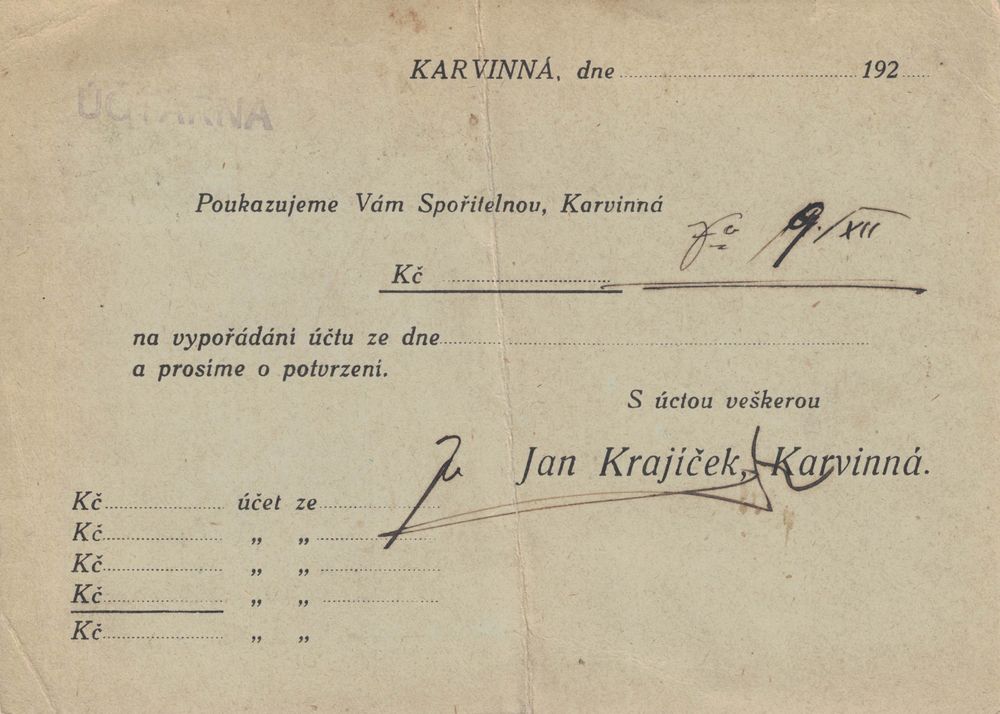 KARVINNÁ, dne 192
ÚČTÁRNA
Poukazujeme Vám Spořitelnou, Karvinná
9./XII
Kč
na vypořádání účtu ze dne
a prosíme o potvrzení.
S úctou veškerou
Jan Krajíček, Karvinná.
Kč účet ze
Kč „ „
Kč „ „
Kč „ „
Kč „ „